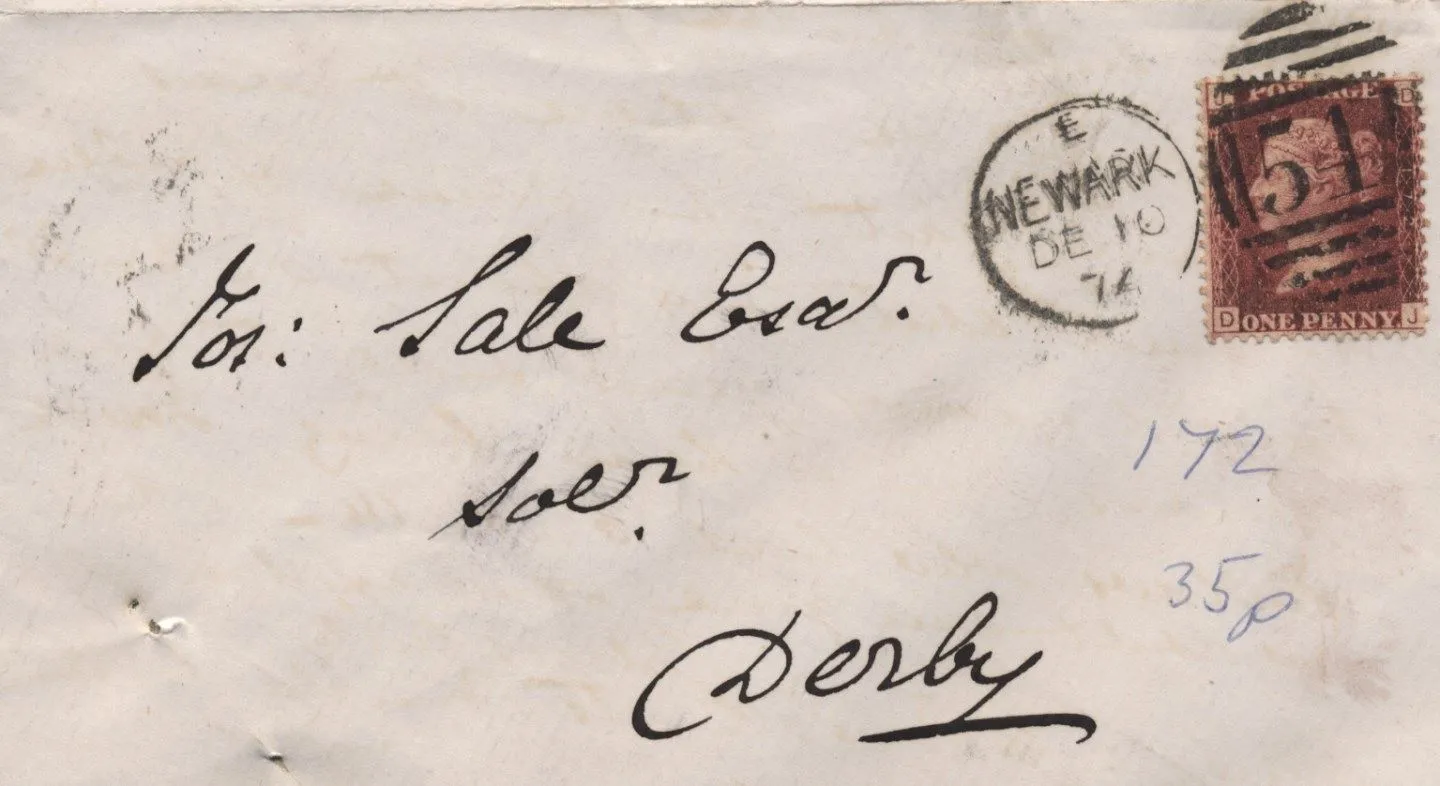 E
NEWARK
DE 10
74
J POSTAGE D
51
D ONE PENNY J
Jos: Sale Esqr.
Solr.
172
35p
Derby